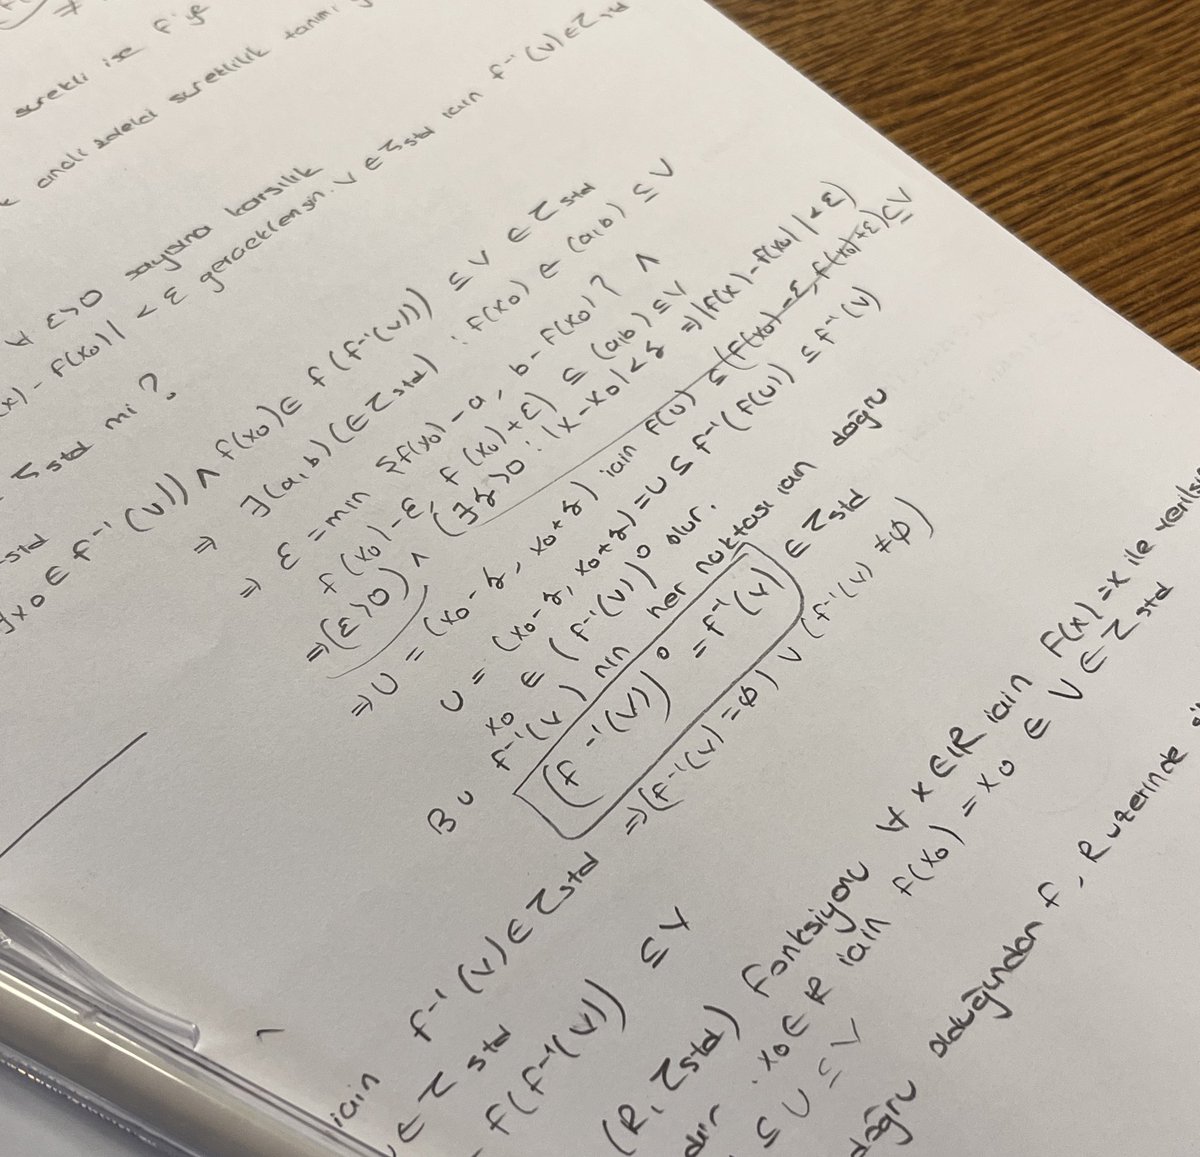 sürekli ise f'ye
süreklilik tanımı
∀ ε>0 sayısına karşılık
(x) - f(x₀)| < ε gerçeklensin. V ∈ τstd için f⁻¹(V) ∈ τstd
τstd mi?
∃x₀ ∈ f⁻¹(V)) ∧ f(x₀) ∈ f(f⁻¹(V)) ⊆ V ∈ τstd
⇒ ∃(a,b) (∈ τstd) : f(x₀) ∈ (a,b) ⊆ V
⇒ ε = min {f(x₀)-a, b-f(x₀)} ∧
f(x₀)-ε, f(x₀)+ε) ⊆ (a,b) ⊆ V
⇒ (ε>0) ∧ (∃δ>0 : |x-x₀|<δ ⇒ |f(x)-f(x₀)|<ε)
⇒ U = (x₀-δ, x₀+δ) için f(U) ⊆ (f(x₀)-ε, f(x₀)+ε) ⊆ V
U = (x₀-δ, x₀+δ) = U ⊆ f⁻¹(f(U)) ⊆ f⁻¹(V)
x₀ ∈ (f⁻¹(V))° olur.
Bu f⁻¹(V) nin her noktası için doğru
(f⁻¹(V))° = f⁻¹(V) ∈ τstd
⇒ (f⁻¹(V) = ∅) ∨ (f⁻¹(V) ≠ ∅)
için f⁻¹(V) ∈ τstd
∈ τstd
f(f⁻¹(V)) ⊆ V
(R, τstd) fonksiyonu ∀ x ∈ IR için f(x) = x ile
x₀ ∈ R için f(x₀) = x₀ ∈ V ∈ τstd
⊆ U ⊆ V
doğru olduğundan f, R üzerinde